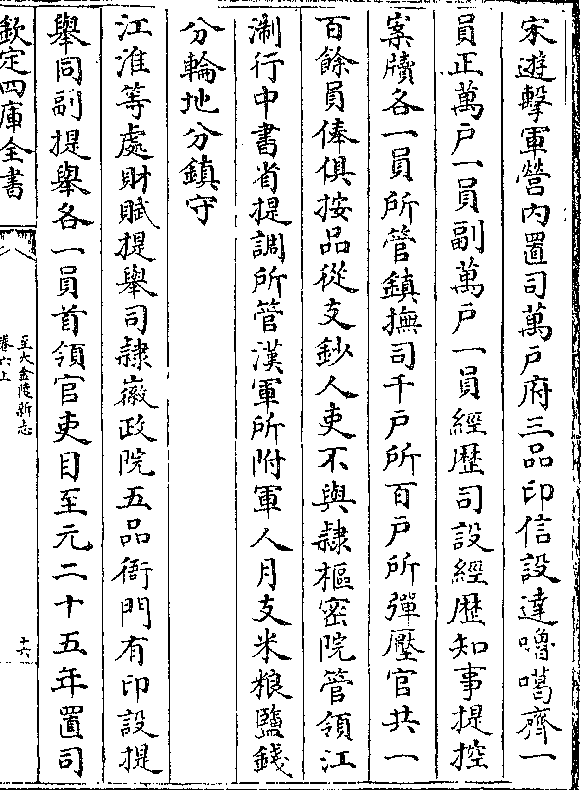 宋遊擊軍營内置司萬戸府三品印信設達嚕噶齊一
員正萬戸一員副萬戸一員經歴司設經歴知事提控
案牘各一員所管鎮撫司千戸所百戸所彈壓官共一
百餘員俸俱按品從支鈔人吏不與隷樞密院管領江
淛行中書省提調所管漢軍所附軍人月支米粮鹽錢
分輪地分鎮守
江淮等處財賦提舉司隷徽政院五品衙門有印設提
舉同副提舉各一員首領官吏目至元二十五年置司
欽定四庫全書
至大金陵新志
卷六上
十六